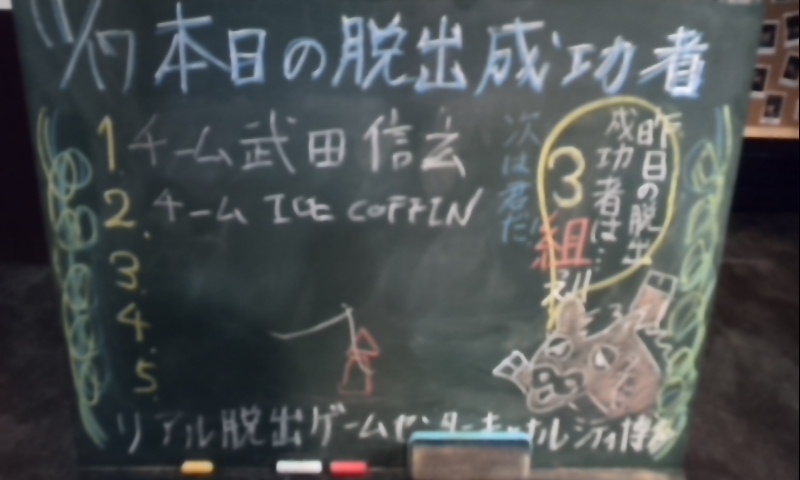 11/17 本日の脱出成功者
1. チーム武田信玄
2. チーム ICE COFFIN
3.
4.
5.
次は君だ!
昨日の脱出
成功者は…
3組
リアル脱出ゲームセンターキャナルシティ博多